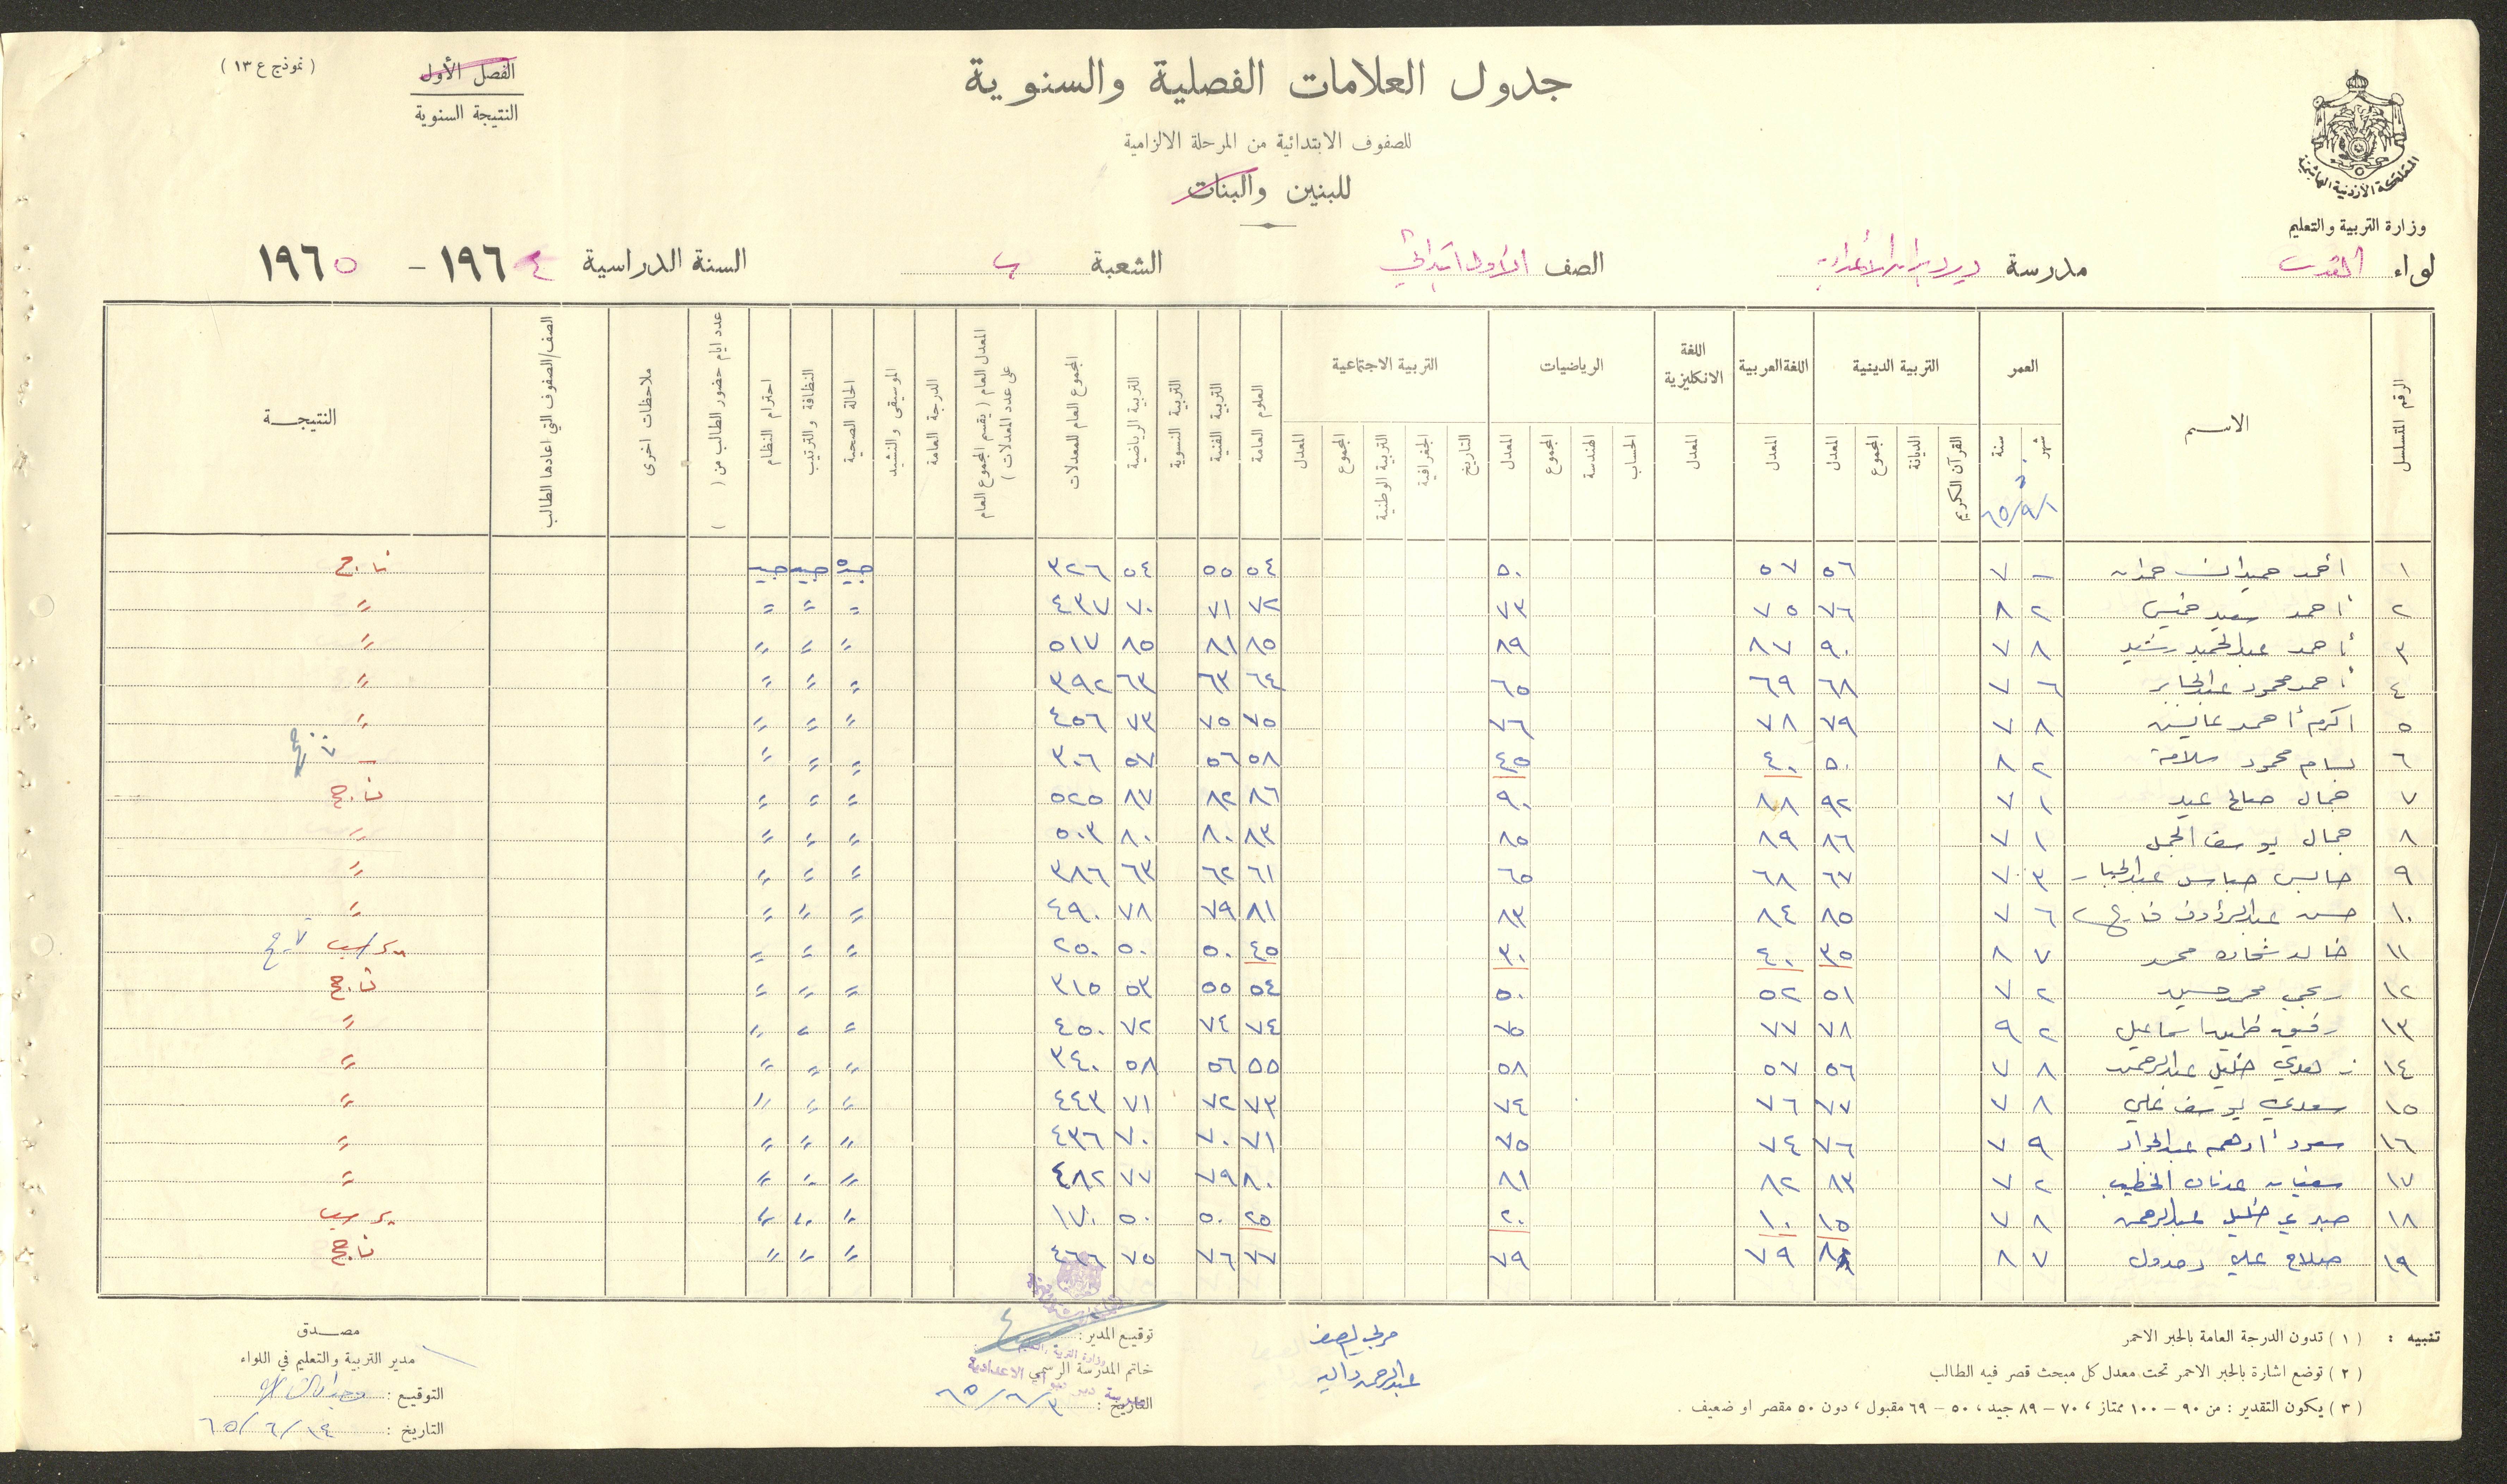 جدول العلامات الفصلية والسنوية
للصفوف الابتدائية من المرحلة الالزامية
للبنين والبنات
( نموذج ع ١٣ )
الفصل الأول
النتيجة السنوية
المملكة الأردنية الهاشمية
وزارة التربية والتعليم
لواء القدس مدرسة الصف الأول ابتدائي الشعبة ب السنة الدراسية ١٩٦٤ - ١٩٦٥
الرقم المتسلسل الاسم العمر التربية الدينية اللغة العربية اللغة الانكليزية الرياضيات التربية الاجتماعية العلوم العامة التربية الفنية التربية النسوية التربية الرياضية المجموع العام للمعدلات المعدل العام ( يقسم المجموع العام على عدد المعدلات ) الدرجة العامة الموسيقى والنشيد الحالة الصحية النظافة والترتيب احترام النظام عدد ايام حضور الطالب من ( ) ملاحظات اخرى الصف/الصفوف التي اعادها الطالب النتيجة
شهر سنة القرآن الكريم الديانة المجموع المعدل المعدل المعدل الحساب الهندسة المجموع المعدل التاريخ الجغرافية التربية الوطنية المجموع المعدل
٦٥/٩/١
١ احمد حميدان حمدان - ٧ ٥٦ ٥٧ ٥٠ ٥٤ ٥٥ ٥٤ ٣٢٦ جيد جيد جيد ناجح
٢ أحمد سعيد خميس ٢ ٨ ٧٦ ٧٥ ٧٣ ٧٢ ٧١ ٧٠ ٤٣٧ " " " "
٣ أحمد عبدالحميد رشيد ٨ ٧ ٩٠ ٨٧ ٨٩ ٨٥ ٨١ ٨٥ ٥١٧ " " " "
٤ أحمد محمود عبدالجابر ٦ ٧ ٦٨ ٦٩ ٦٥ ٦٤ ٦٣ ٦٣ ٣٩٢ " " " "
٥ اكرم أحمد ٨ ٧ ٧٩ ٧٨ ٧٦ ٧٥ ٧٥ ٧٣ ٤٥٦ " " " "
٦ بسام محمود سلامة ٢ ٨ ٥٠ ٤٠ ٤٥ ٥٨ ٥٦ ٥٧ ٣٠٦ " " "
٧ جمال صالح عيد ١ ٧ ٩٢ ٨٨ ٩٠ ٨٦ ٨٢ ٨٧ ٥٢٥ " " " ناجح
٨ جمال يوسف الجمل ١ ٧ ٨٦ ٨٩ ٨٥ ٨٣ ٨٠ ٨٠ ٥٠٣ " " " "
٩ عبدالجبار ٣ ٧ ٦٧ ٦٨ ٦٥ ٦١ ٦٢ ٦٣ ٣٨٦ " " " "
١٠ حسن عبدالرؤوف ٦ ٧ ٨٥ ٨٤ ٨٣ ٨١ ٧٩ ٧٨ ٤٩٠ " " " "
١١ خالد شحاده محمد ٧ ٨ ٣٥ ٤٠ ٣٠ ٤٥ ٥٠ ٥٠ ٢٥٠ " " " يرسب
١٢ ربحي محمد حسين ٢ ٧ ٥١ ٥٢ ٥٠ ٥٤ ٥٥ ٥٣ ٣١٥ " " " ناجح
١٣ رفيق خليل اسماعيل ٢ ٩ ٧٨ ٧٧ ٧٥ ٧٤ ٧٤ ٧٢ ٤٥٠ " " " "
١٤ زهدي خليل عبدالرحمن ٨ ٧ ٥٦ ٥٧ ٥٨ ٥٥ ٥٦ ٥٨ ٣٤٠ " " " "
١٥ سعدي يوسف علي ٨ ٧ ٧٧ ٧٦ ٧٤ ٧٣ ٧٢ ٧١ ٤٤٣ " " " "
١٦ سعود أدهم عبدالجواد ٩ ٧ ٧٦ ٧٤ ٧٥ ٧١ ٧٠ ٧٠ ٤٣٦ " " " "
١٧ سفيان عدنان الخطيب ٢ ٧ ٨٣ ٨٢ ٨١ ٨٠ ٧٩ ٧٧ ٤٨٢ " " " "
١٨ صبري خليل عبدالرحمن ٨ ٧ ١٥ ١٠ ٢٠ ٢٥ ٥٠ ٥٠ ١٧٠ " " " يرسب
١٩ صلاح علي ٧ ٨ ٧٩ ٧٩ ٧٧ ٧٦ ٧٥ ٤٦٦ " " " ناجح
تنبيه : ( ١ ) تدون الدرجة العامة بالحبر الاحمر
( ٢ ) توضع اشارة بالحبر الاحمر تحت معدل كل مبحث قصر فيه الطالب
( ٣ ) يكون التقدير : من ٩٠ - ١٠٠ ممتاز ، ٧٠ - ٨٩ جيد ، ٥٠ - ٦٩ مقبول ، دون ٥٠ مقصر او ضعيف .
مربي الصف
توقيع المدير :
خاتم المدرسة الرسمي
التاريخ : ٦٥/٦/٣
مصدق
مدير التربية والتعليم في اللواء
التوقيع :
التاريخ : ٦٥/٦/١٤